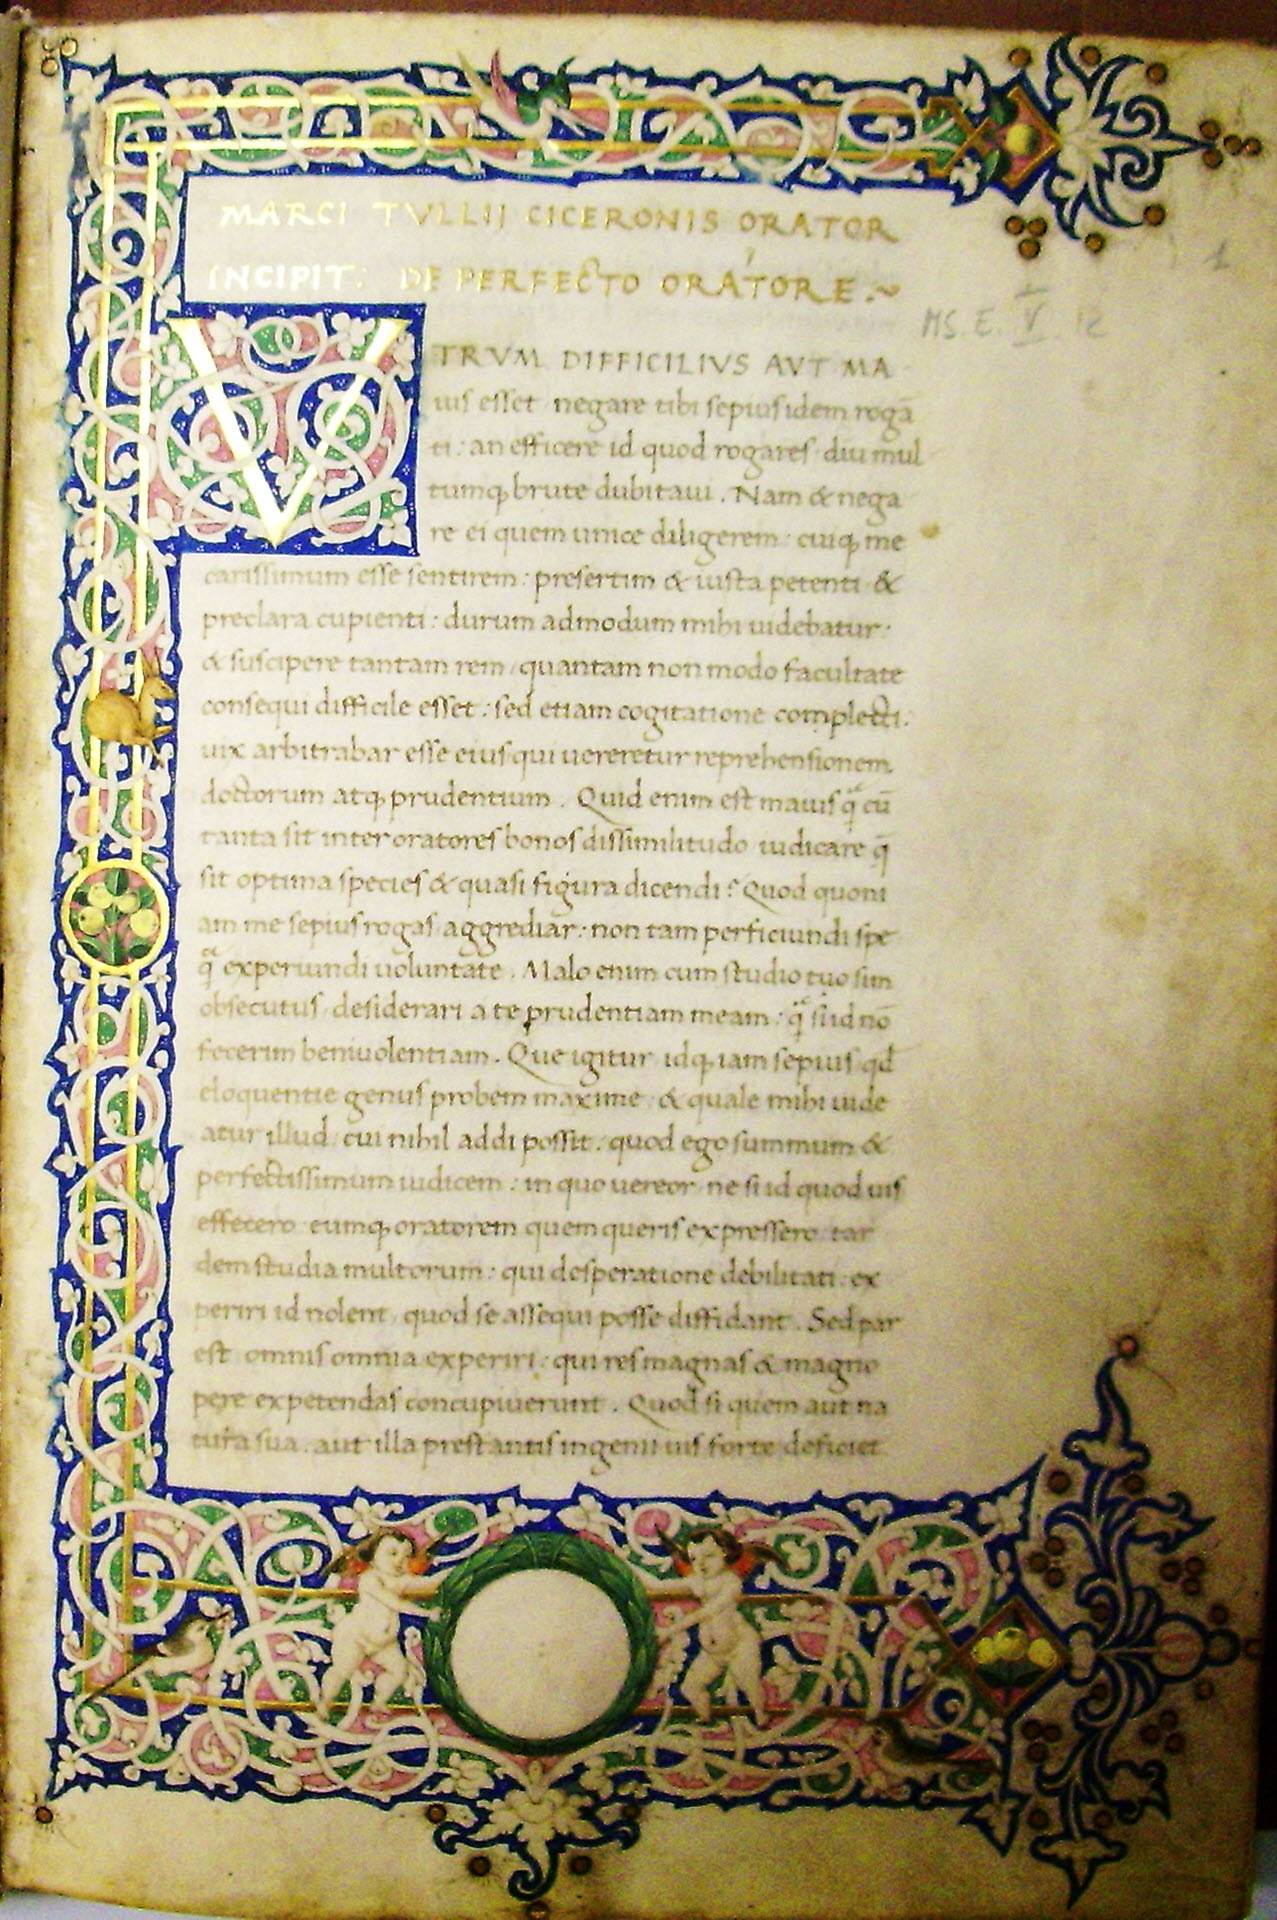 MARCI TVLLII CICERONIS ORATOR
INCIPIT: DE PERFECTO ORATORE.~
1
MS. E. V 12
VTRVM DIFFICILIVS AVT MA
ius esset negare tibi sepius idem rogā
ti: an efficere id quod rogares diu mul
tumq; brute dubitaui. Nam & nega
re ei quem unice diligerem: cuiq; me
carissimum esse sentirem: presertim & iusta petenti &
preclara cupienti: durum admodum mihi uidebatur.
& suscipere tantam rem, quantam non modo facultate
consequi difficile esset: sed etiam cogitatione complecti.
uix arbitrabar esse eius qui uereretur reprehensionem
doctorum atq; prudentium. Quid enim est maius q̄ cū
tanta sit inter oratores bonos dissimilitudo iudicare q̄
sit optima species & quasi figura dicendi? Quod quoni
am me sepius rogas aggrediar: non tam perficiundi spe
q̄ experiundi uoluntate. Malo enim cum studio tuo sim
obsecutus desiderari a te prudentiam meam: q̄ si id nō
fecerim beniuolentiam. Que igitur idq; iam sepius qd̄
eloquentie genus probem maxime & quale mihi uide
atur illud, cui nihil addi possit. quod ego summum &
perfectissimum iudicem: in quo uereor ne si id quod uis
effecero eumq; oratorem quem queris expressero tar
dem studia multorum: qui desperatione debilitati ex
periri id nolent, quod se assequi posse diffidant. Sed par
est omnis omnia experiri: qui res magnas & magno
pere expetendas concupiuerunt. Quod si quem aut na
tura sua. aut illa prestantis ingenii uis forte deficiet